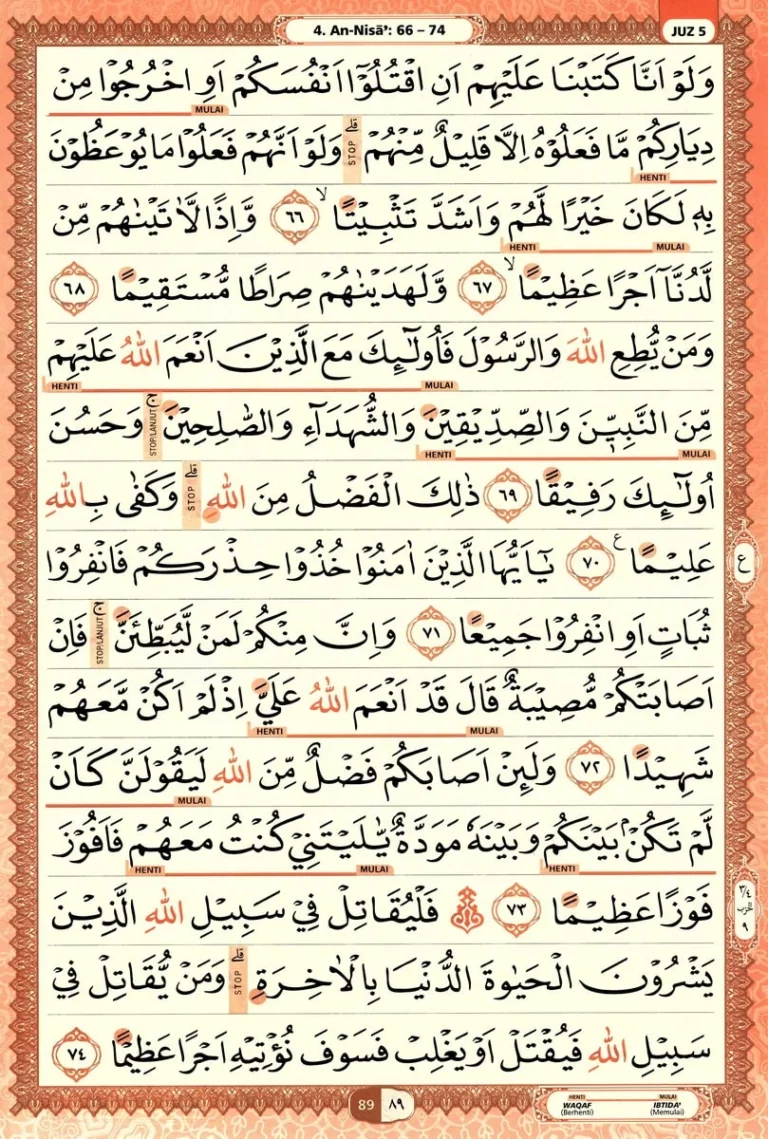 4. An-Nisā’: 66 – 74
JUZ 5
وَلَوْ اَنَّا كَتَبْنَا عَلَيْهِمْ اَنِ اقْتُلُوْٓا اَنْفُسَكُمْ اَوِ اخْرُجُوْا مِنْ
MULAI
دِيَارِكُمْ مَّا فَعَلُوْهُ اِلَّا قَلِيْلٌ مِّنْهُمْ ۗ STOP وَلَوْ اَنَّهُمْ فَعَلُوْا مَا يُوْعَظُوْنَ
HENTI
بِهٖ لَكَانَ خَيْرًا لَّهُمْ وَاَشَدَّ تَثْبِيْتًا ۙ ٦٦ وَّاِذًا لَّاٰتَيْنٰهُمْ مِّنْ
HENTI MULAI
لَّدُنَّآ اَجْرًا عَظِيْمًا ۙ ٦٧ وَّلَهَدَيْنٰهُمْ صِرَاطًا مُّسْتَقِيْمًا ٦٨
وَمَنْ يُّطِعِ اللّٰهَ وَالرَّسُوْلَ فَاُولٰۤىِٕكَ مَعَ الَّذِيْنَ اَنْعَمَ اللّٰهُ عَلَيْهِمْ
HENTI MULAI
مِّنَ النَّبِيّٖنَ وَالصِّدِّيْقِيْنَ وَالشُّهَدَاۤءِ وَالصّٰلِحِيْنَ ۚ STOP/LANJUT وَحَسُنَ
HENTI MULAI
اُولٰۤىِٕكَ رَفِيْقًا ٦٩ ذٰلِكَ الْفَضْلُ مِنَ اللّٰهِ ۗ STOP وَكَفٰى بِاللّٰهِ
عَلِيْمًا ࣖ ٧٠ يٰٓاَيُّهَا الَّذِيْنَ اٰمَنُوْا خُذُوْا حِذْرَكُمْ فَانْفِرُوْا
ع
ثُبَاتٍ اَوِ انْفِرُوْا جَمِيْعًا ٧١ وَاِنَّ مِنْكُمْ لَمَنْ لَّيُبَطِّئَنَّ ۚ STOP/LANJUT فَاِنْ
اَصَابَتْكُمْ مُّصِيْبَةٌ قَالَ قَدْ اَنْعَمَ اللّٰهُ عَلَيَّ اِذْ لَمْ اَكُنْ مَّعَهُمْ
HENTI MULAI
شَهِيْدًا ٧٢ وَلَىِٕنْ اَصَابَكُمْ فَضْلٌ مِّنَ اللّٰهِ لَيَقُوْلَنَّ كَاَنْ
MULAI
لَّمْ تَكُنْۢ بَيْنَكُمْ وَبَيْنَهٗ مَوَدَّةٌ يّٰلَيْتَنِيْ كُنْتُ مَعَهُمْ فَاَفُوْزَ
HENTI MULAI HENTI
فَوْزًا عَظِيْمًا ٧٣ ۞ فَلْيُقَاتِلْ فِيْ سَبِيْلِ اللّٰهِ الَّذِيْنَ
٣/٤ الحزب ٩
يَشْرُوْنَ الْحَيٰوةَ الدُّنْيَا بِالْاٰخِرَةِ ۗ STOP وَمَنْ يُّقَاتِلْ فِيْ
سَبِيْلِ اللّٰهِ فَيُقْتَلْ اَوْ يَغْلِبْ فَسَوْفَ نُؤْتِيْهِ اَجْرًا عَظِيْمًا ٧٤
89 ٨٩
HENTI MULAI
WAQAF IBTIDA'
(Berhenti) (Memulai)